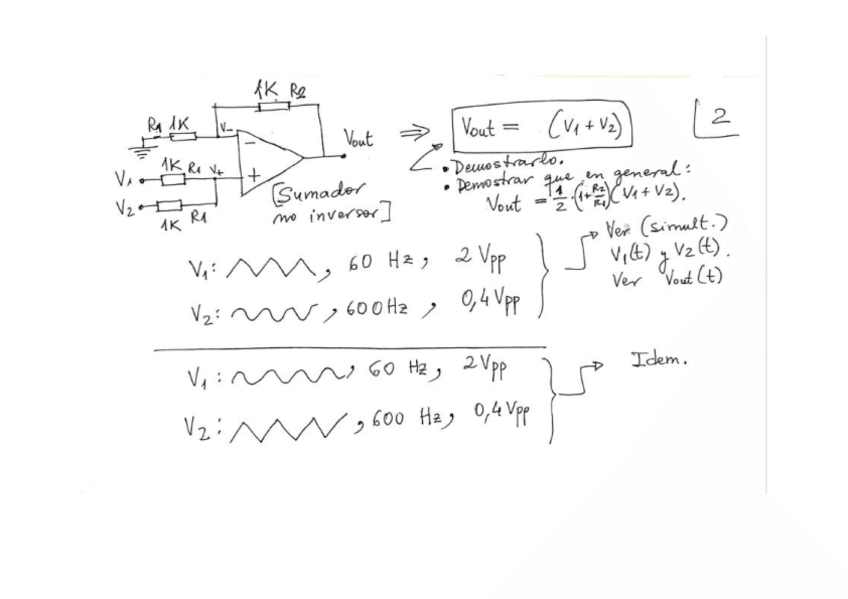 1K R2
R1 1K
V-
Vout
⇒ Vout = (V1 + V2)
2
1K R1 V+
V1
- +
V2
1K R1
[Sumador
no inversor]
• Demostrarlo.
• Demostrar que en general:
Vout = 1/2 · (1 + R2/R1)(V1 + V2).
V1: , 60 Hz, 2 Vpp
V2: , 600Hz , 0,4 Vpp
Ver (simult.)
V1(t) y V2(t).
Ver Vout(t)
V1: , 60 Hz, 2 Vpp
V2: , 600 Hz, 0,4 Vpp
Idem.